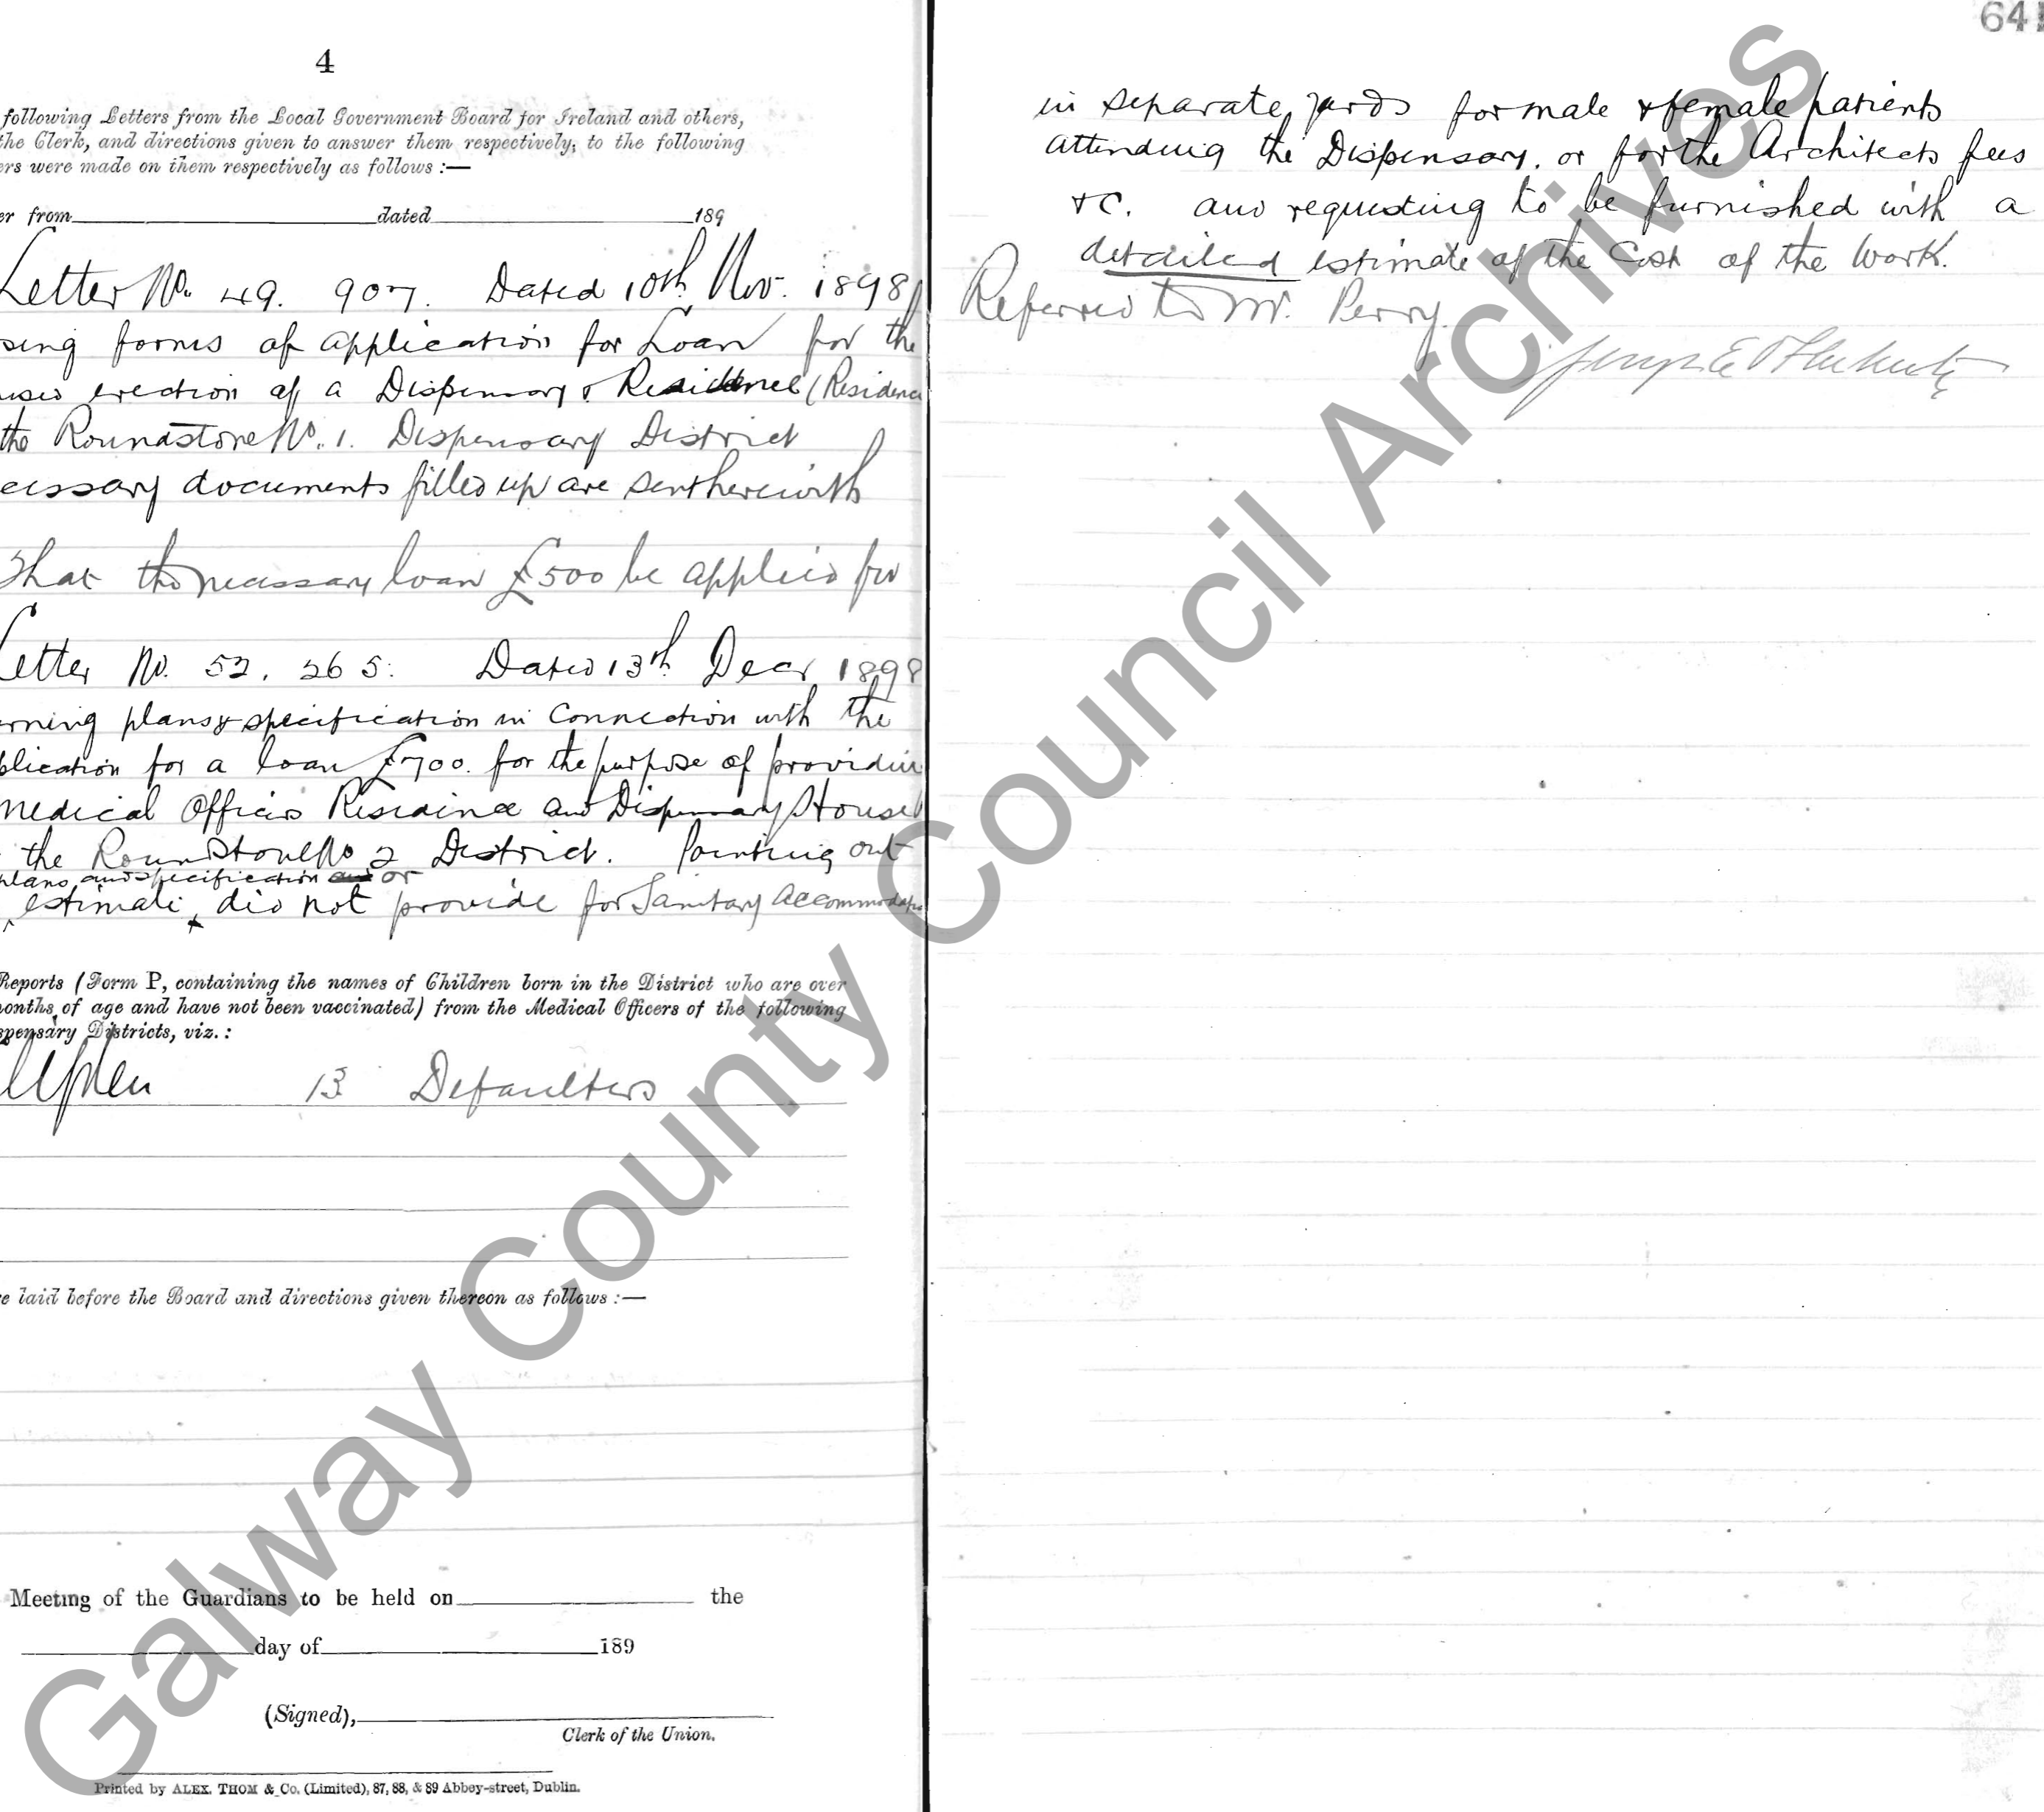 4
following Letters from the Local Government Board for Ireland and others,
the Clerk, and directions given to answer them respectively, to the following
ers were made on them respectively as follows :—
er from dated 189
Letter No. 49. 907. Dated 10th Nov. 1898
sing forms of application for Loan for the
erection of a Dispensary & Residence (Residence
the Roundstone No. 1. Dispensary District
cessary documents filled up are sent herewith
That the necessary loan £500 be applied for
Letter No. 52. 265. Dated 13th Decr 1898
rning plans & specification in connection with the
plication for a loan £700. for the purpose of providing
Medical Officers Residence and Dispensary House
the Roundstone No 2 District. Pointing out
plans and specification or
estimate did not provide for Sanitary accommodation
Reports (Form P, containing the names of Children born in the District who are over
months of age and have not been vaccinated) from the Medical Officers of the following
spensary Districts, viz. :
13 Defaulters
e laid before the Board and directions given thereon as follows :—
Meeting of the Guardians to be held on the
day of 189
(Signed),
Clerk of the Union.
Printed by ALEX. THOM & Co. (Limited), 87, 88, & 89 Abbey-street, Dublin.
641
in separate yards for male & female patients
attending the Dispensary. or for the Architects fees
&c. and requesting to be furnished with a
detailed estimate of the Cost of the Work.
Referred to Mr. Perry.
Galway County Council Archives